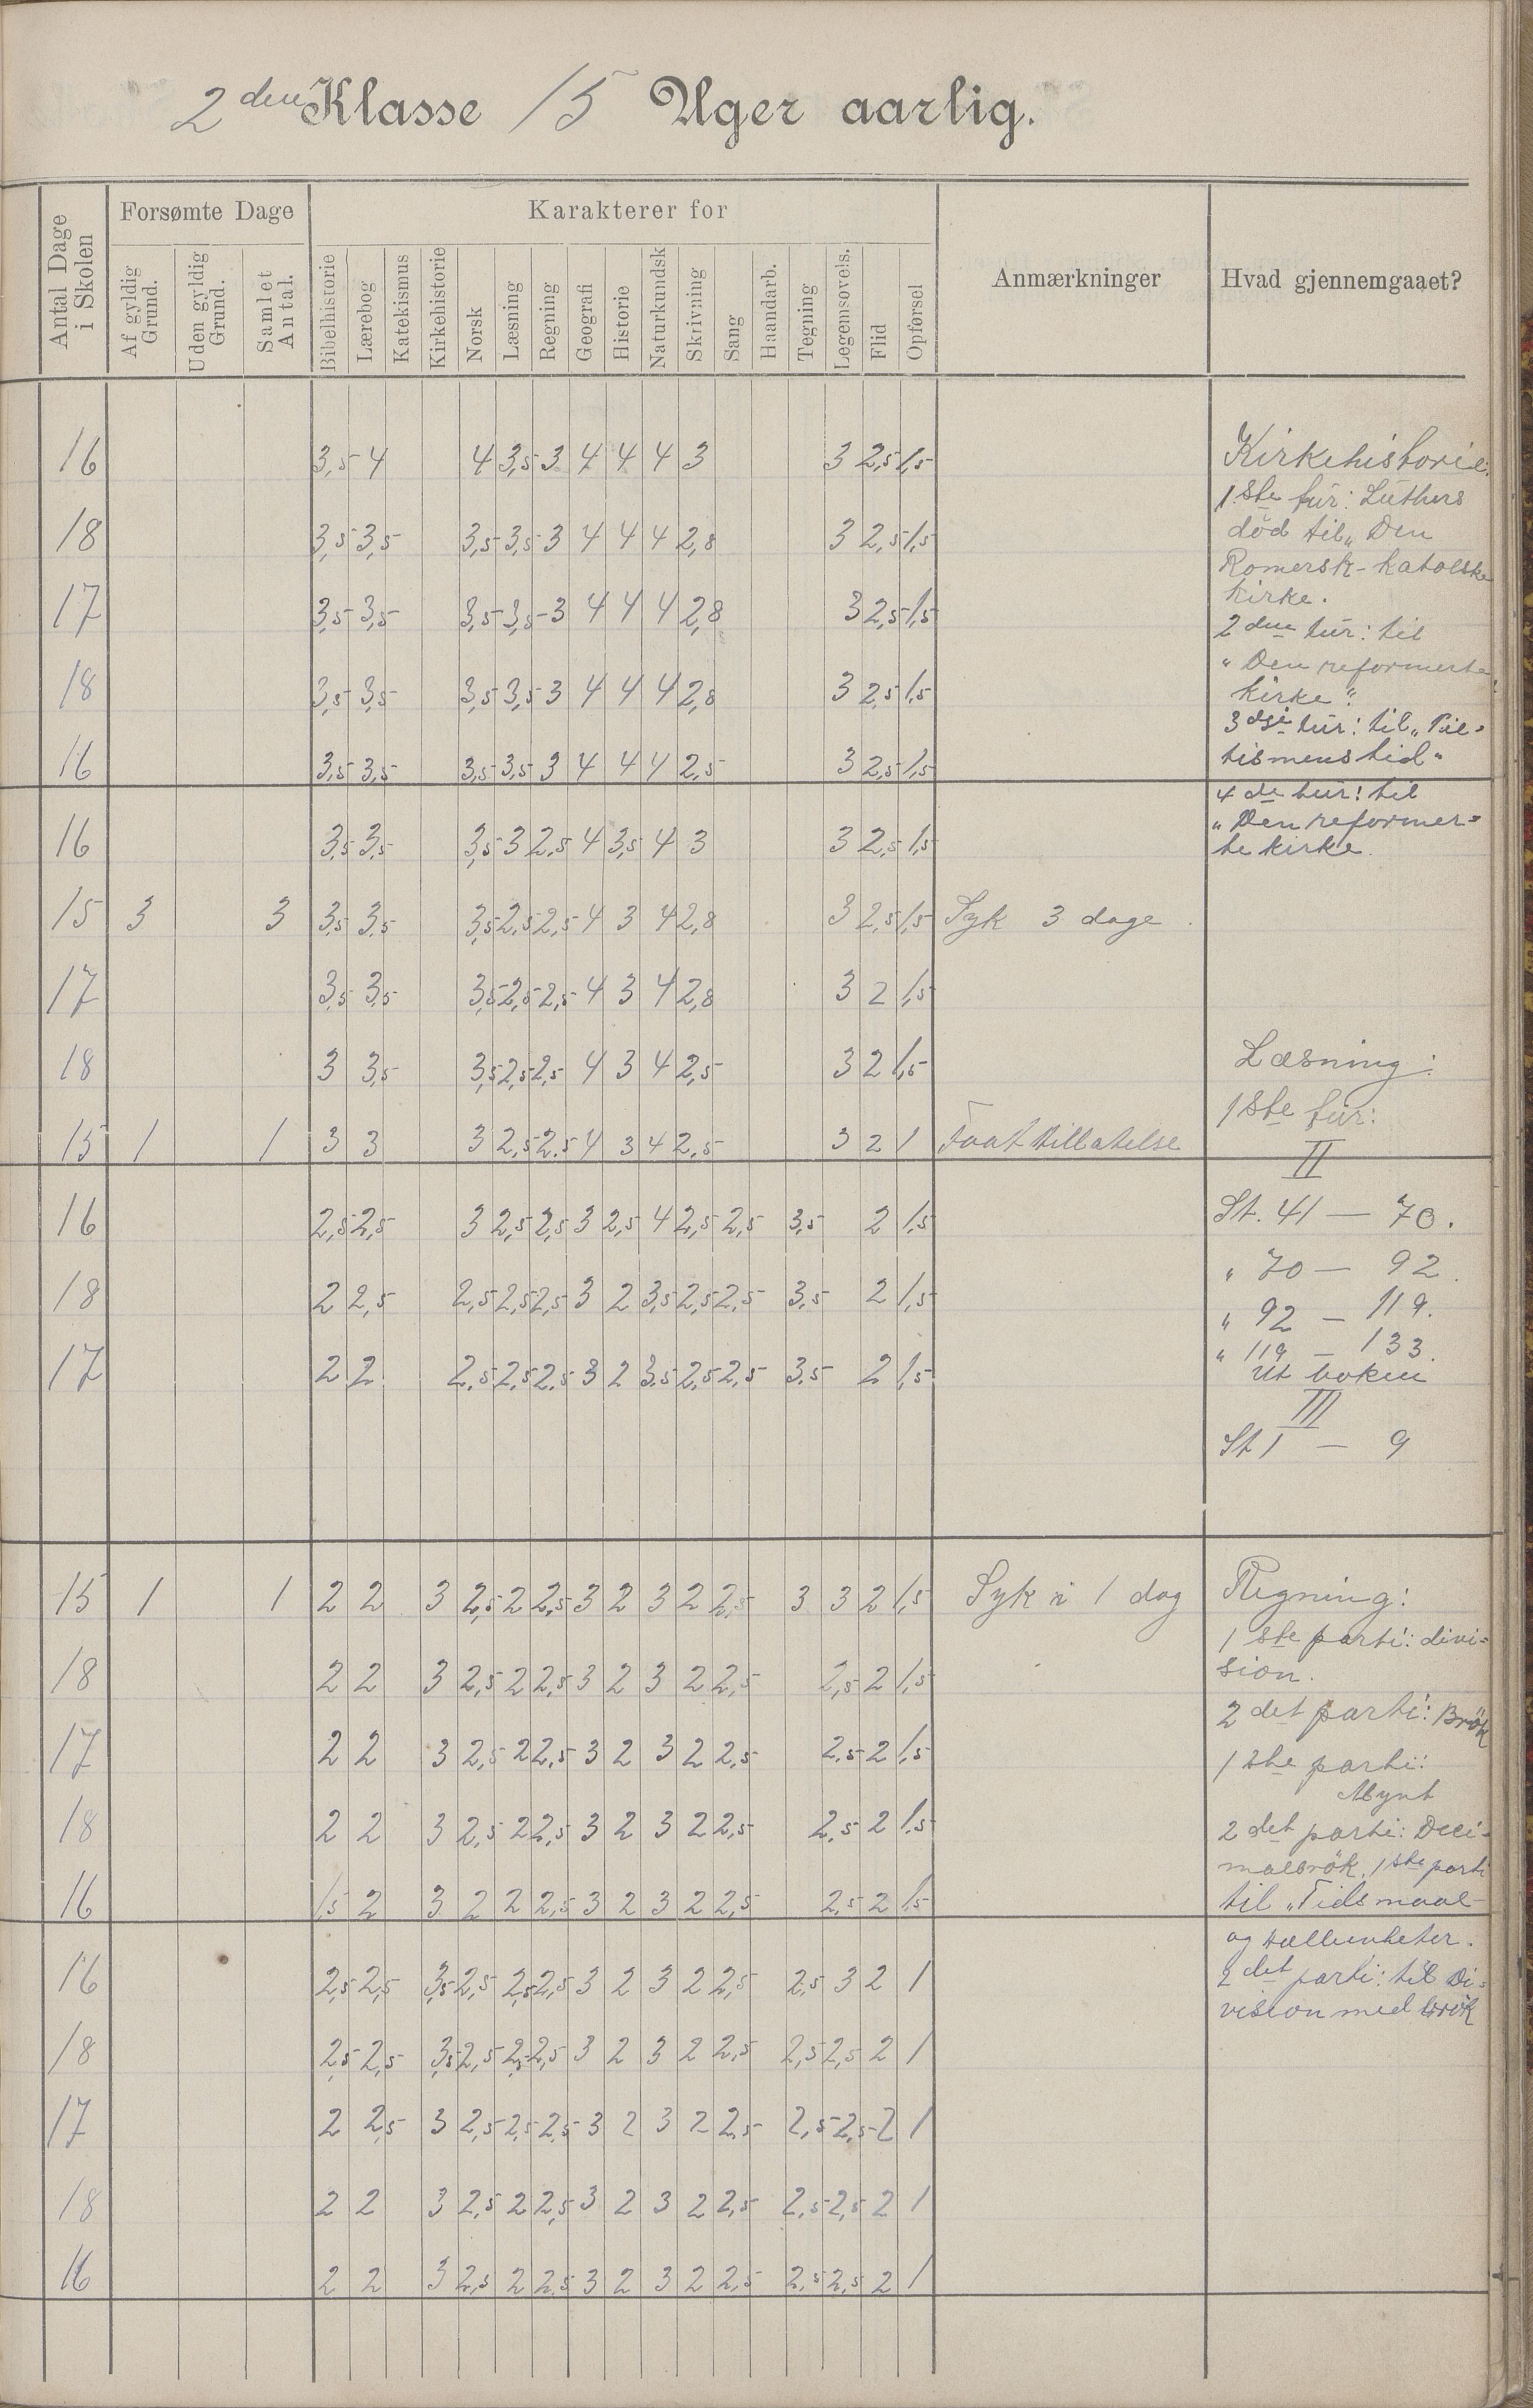 2den Klasse 15 Uger aarlig.
Antal Dage i Skolen
Forsømte Dage
Af gyldig Grund.
Uden gyldig Grund.
Samlet Antal.
Karakterer for
Bibelhistorie
Lærebog
Katekismus
Kirkehistorie
Norsk
Læsning
Regning
Geografi
Historie
Naturkundsk
Skrivning
Sang
Haandarb.
Tegning
Legemsøvels.
Flid
Opførsel
Anmærkninger
Hvad gjennemgaaet?
16 3,5 4 4 3,5 3 4 4 4 3 3 2,5 1,5
18 3,5 3,5 3,5 3,5 3 4 4 4 2,8 3 2,5 1,5
17 3,5 3,5 3,5 3,5 3 4 4 4 2,8 3 2,5 1,5
18 3,5 3,5 3,5 3,5 3 4 4 4 2,8 3 2,5 1,5
16 3,5 3,5 3,5 3,5 3 4 4 4 2,5 3 2,5 1,5
16 3,5 3,5 3,5 3 2,5 4 3,5 4 3 3 2,5 1,5
15 3 3 3,5 3,5 3,5 2,5 2,5 4 3 4 2,8 3 2,5 1,5 Syk 3 dage
17 3,5 3,5 3,5 2,5 2,5 4 3 4 2,8 3 2 1,5
18 3 3,5 3,5 2,5 2,5 4 3 4 2,5 3 2 1,5
15 1 1 3 3 3 2,5 2,5 4 3 4 2,5 3 2 1 Faat tillatelse
16 2,5 2,5 3 2,5 2,5 3 2,5 4 2,5 2,5 3,5 2 1,5
18 2 2,5 2,5 2,5 2,5 3 2 3,5 2,5 2,5 3,5 2 1,5
17 2 2 2,5 2,5 2,5 3 2 3,5 2,5 2,5 3,5 2 1,5
15 1 1 2 2 3 2,5 2 2,5 3 2 3 2 2,5 3 3 2 1,5 Syk i 1 dag
18 2 2 3 2,5 2 2,5 3 2 3 2 2,5 2,5 2 1,5
17 2 2 3 2,5 2 2,5 3 2 3 2 2,5 2,5 2 1,5
18 2 2 3 2,5 2 2,5 3 2 3 2 2,5 2,5 2 1,5
16 1,5 2 3 2 2 2,5 3 2 3 2 2,5 2,5 2 1,5
16 2,5 2,5 3,5 2,5 2,5 2,5 3 2 3 2 2,5 2,5 3 2 1
18 2,5 2,5 3,5 2,5 2,5 2,5 3 2 3 2 2,5 2,5 2,5 2 1
17 2 2,5 3 2,5 2,5 2,5 3 2 3 2 2,5 2,5 2,5 2 1
18 2 2 3 2,5 2 2,5 3 2 3 2 2,5 2,5 2,5 2 1
16 2 2 3 2,5 2 2,5 3 2 3 2 2,5 2,5 2,5 2 1
Kirkehistorie:
1ste tur: Luthers
död til „Den
Romersk-katolske
kirke.
2den tur: til
"Den reformerte
kirke".
3dje tur: til „Pie=
tismens tid"
4de tur: til
"Den reformer=
te kirke.
Læsning:
1ste tur:
II
St. 41 — 70.
" 70 — 92.
" 92 — 119.
" 119 — 133.
Ut boken
III
St 1 — 9
Regning:
1ste parti: divi=
sion.
2det parti: Brök
1ste parti:
Mynt
2det parti: Deci-
malbrök. 1ste parti
til „Tidsmaal
og tælleenheter.
2det parti: til Di=
vision med brök